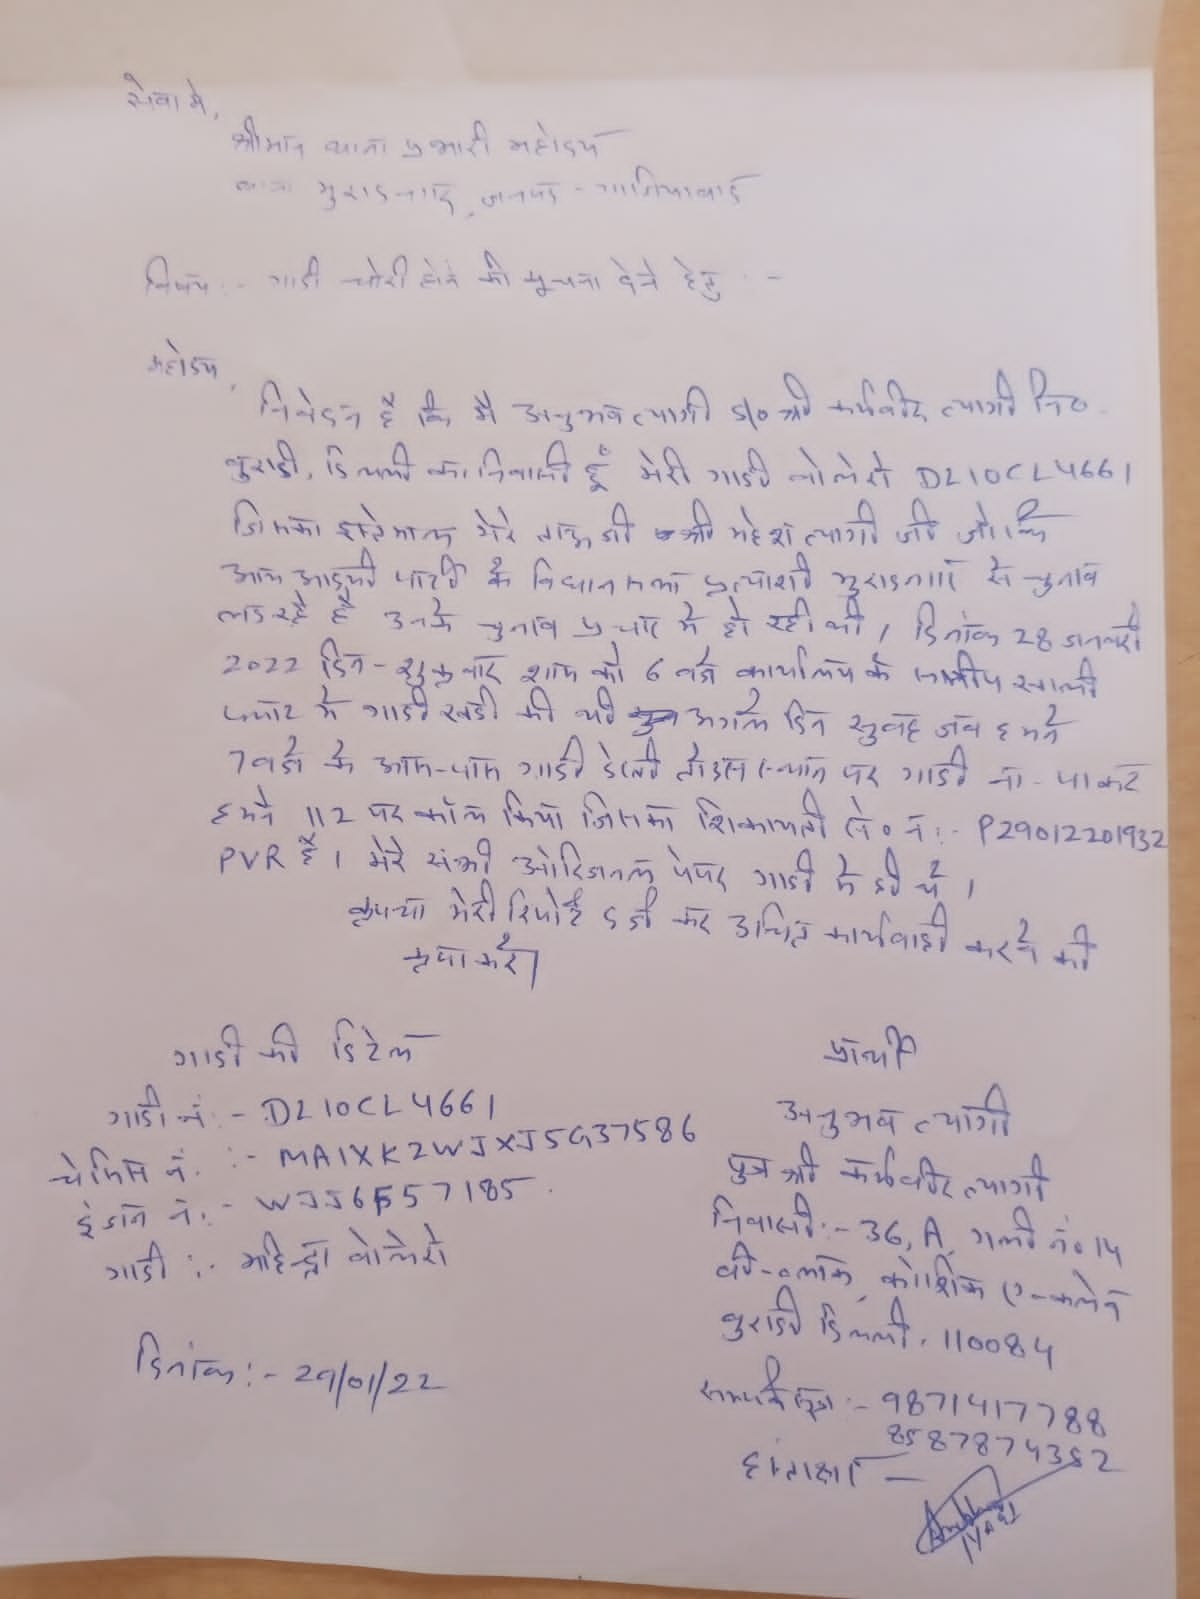 सेवा मे,
श्रीमान थाना प्रभारी महोदय
थाना मुरादनगर, जनपद - गाजियाबाद
विषय :- गाडी चोरी होने की सूचना देने हेतु :-
महोदय,
निवेदन है कि मै अनुभव त्यागी S/o श्री कर्मवीर त्यागी नि०
बुराडी, दिल्ली का निवासी हूँ मेरी गाडी बोलेरो DL10CL4661
जिसका इस्तेमाल मेरे ताऊजी श्री महेश त्यागी जी जो कि
आम आदमी पार्टी के विधानसभा प्रत्याशी मुरादनगर से चुनाव
लड रहे है उनके चुनाव प्रचार मे हो रही थी, दिनांक 28 जनवरी
2022 दिन - शुक्रवार शाम को 6 बजे कार्यालय के समीप खाली
प्लाट मे गाडी खडी की थी अगले दिन सुबह जब हमने
7 बजे के आस-पास गाडी देखी तो उस स्थान पर गाडी ना - पाकर
हमने 112 पर कॉल किया जिसका शिकायती नं :- P29012201932
PVR है। मेरे सभी ओरिजनल पेपर गाडी मे ही थे।
कृपया मेरी रिपोर्ट दर्ज कर उचित कार्यवाही करने की
कृपा करे।
गाडी की डिटेल
गाडी नं :- DL10CL4661
चेसिस नं. :- MA1XK2WJXJ5G37586
इंजन नं :- WJJ6F57185
गाडी :- महिन्द्रा बोलेरो
दिनांक :- 29/01/22
प्रार्थी
अनुभव त्यागी
पुत्र श्री कर्मवीर त्यागी
निवासी :- 36, A, गली नं० 14
बी-ब्लॉक, कौशिक एन्कलेव
बुराडी दिल्ली. 110084
सम्पर्क सूत्र :- 9871417788
8587874382
हस्ताक्षर -